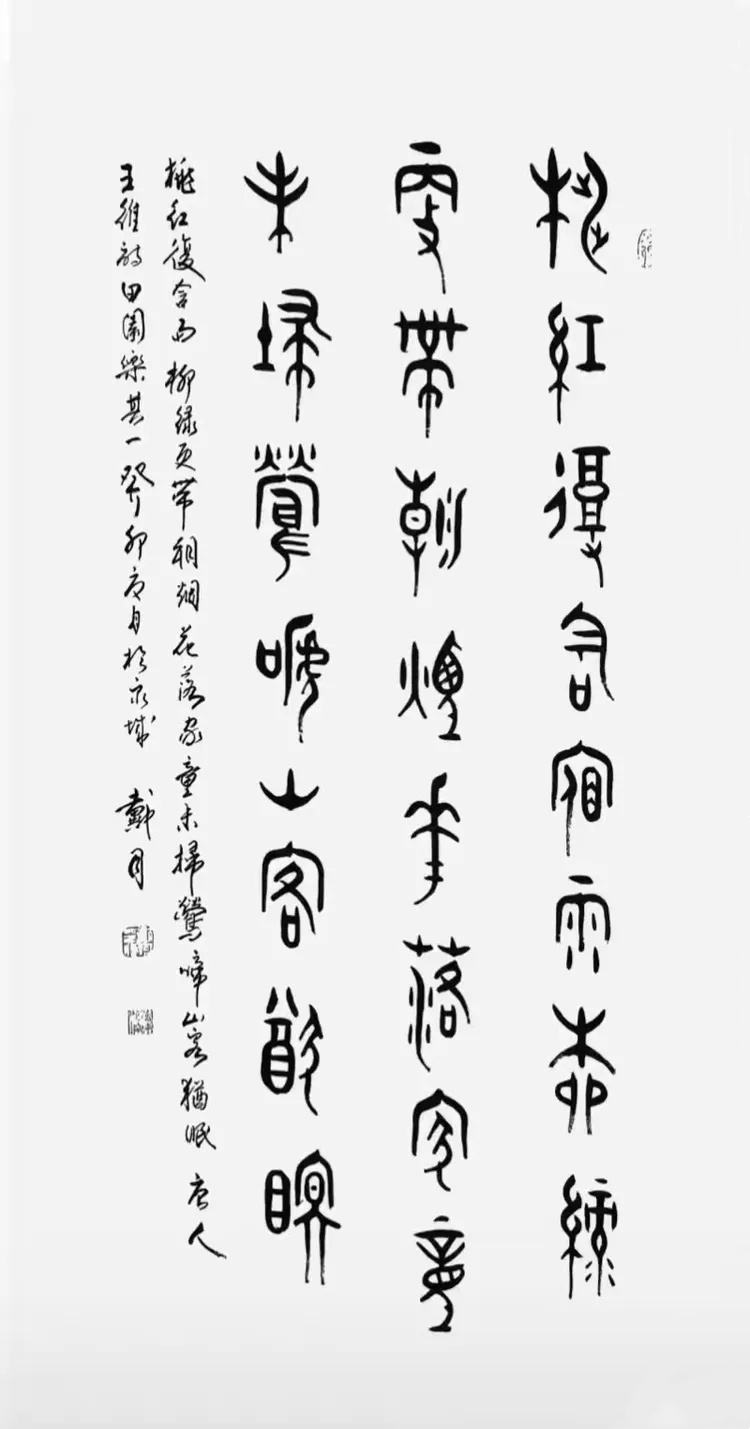 桃紅復含宿雨柳綠
更帶朝煙花落家童
未掃鶯啼山客猶眠
桃紅復含雨柳綠更帶朝烟花落家童未掃鶯啼山客猶眠 唐人
王維詩田園樂其一癸卯夏月於京城 戴月